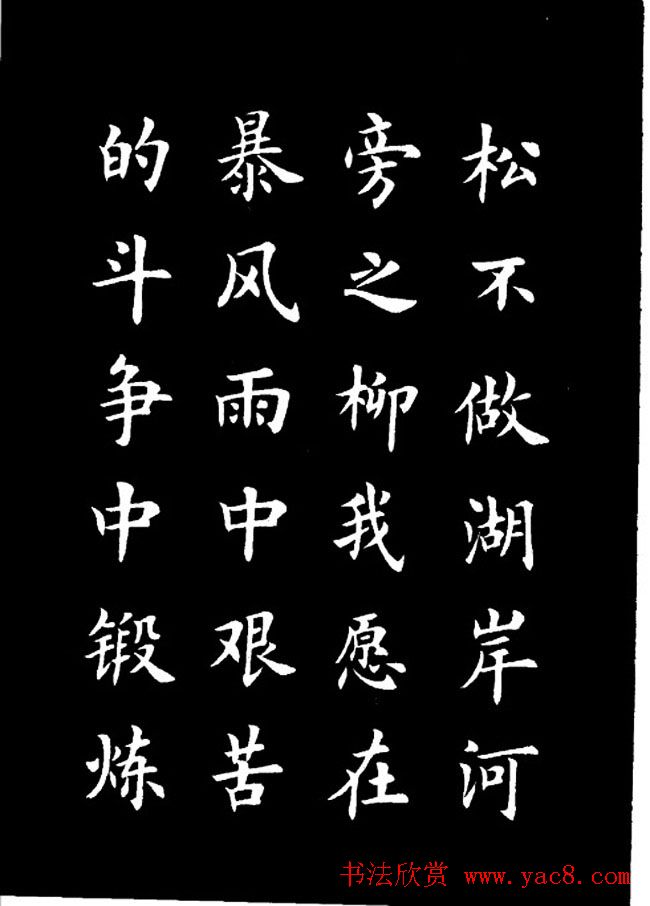 松不做湖岸河
旁之柳我愿在
暴风雨中艰苦
的斗争中锻炼
书法欣赏 www.yac8.com